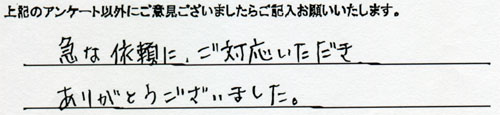 上記のアンケート以外にご意見ございましたらご記入お願いいたします。
急な依頼に、ご対応いただき
ありがとうございました。